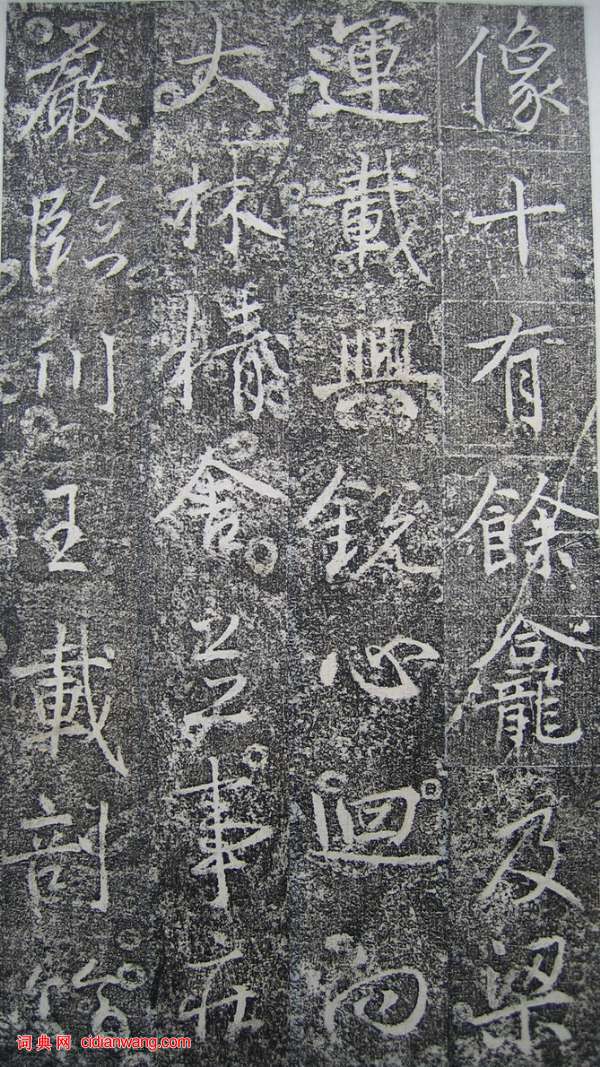 像十有餘龕及梁
運載興銳心迴向
大林精舍並事莊
嚴臨川王載剖
词典网 cidianwang.com